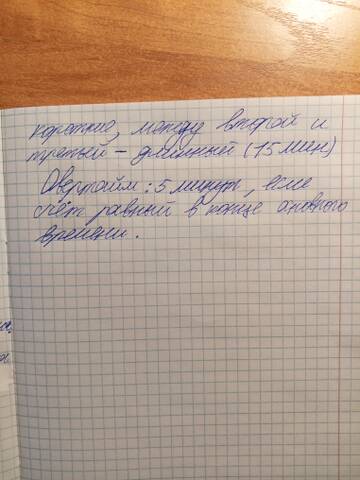 короткие, между второй и
третьей – длинный (15 мин)
Овертайм: 5 минут, если
счёт равный в конце основного
времени.